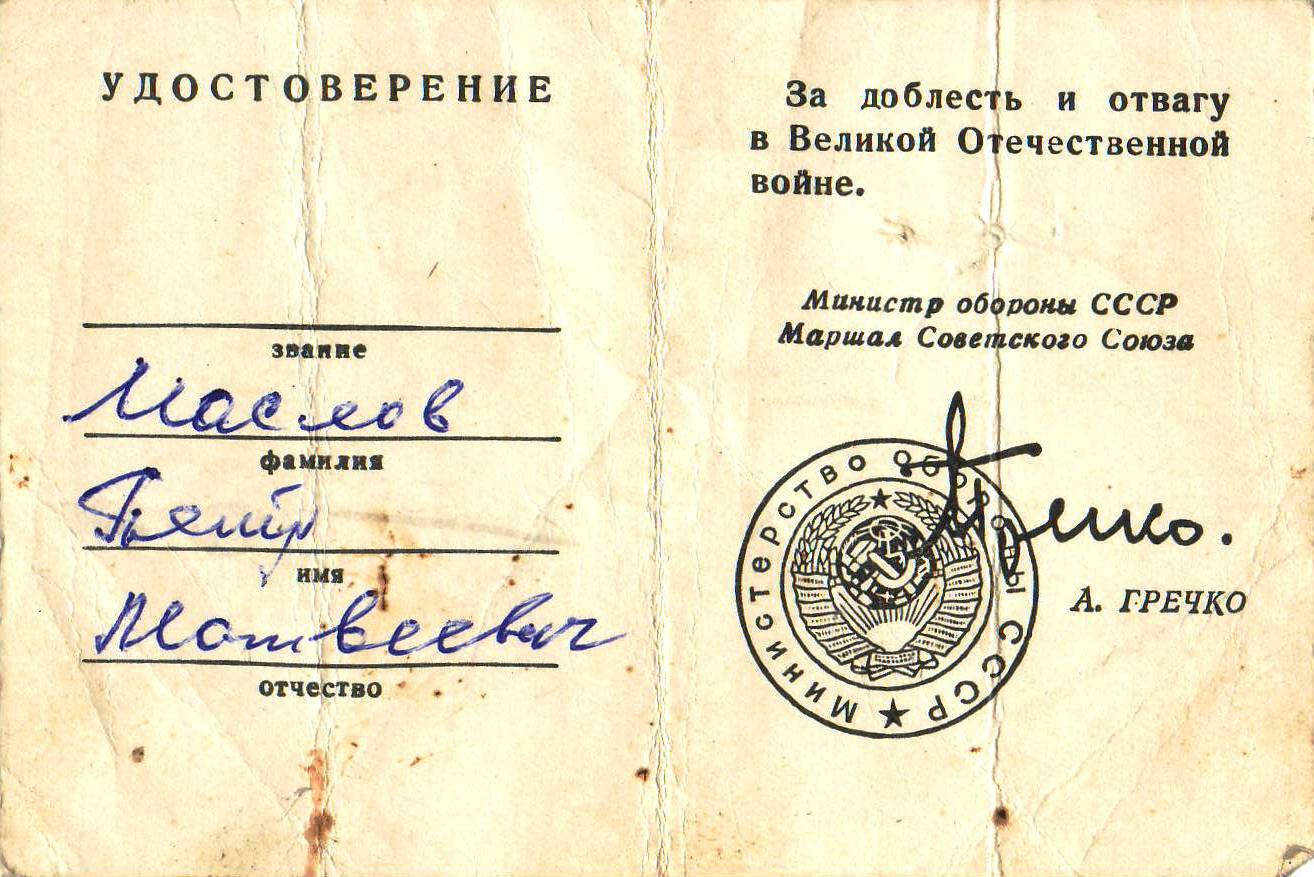 УДОСТОВЕРЕНИЕ
звание
Маслов
фамилия
Петр
имя
Матвеевич
отчество
За доблесть и отвагу
в Великой Отечественной
войне.
Министр обороны СССР
Маршал Советского Союза
Гречко.
Министерство Обороны СССР
А. ГРЕЧКО